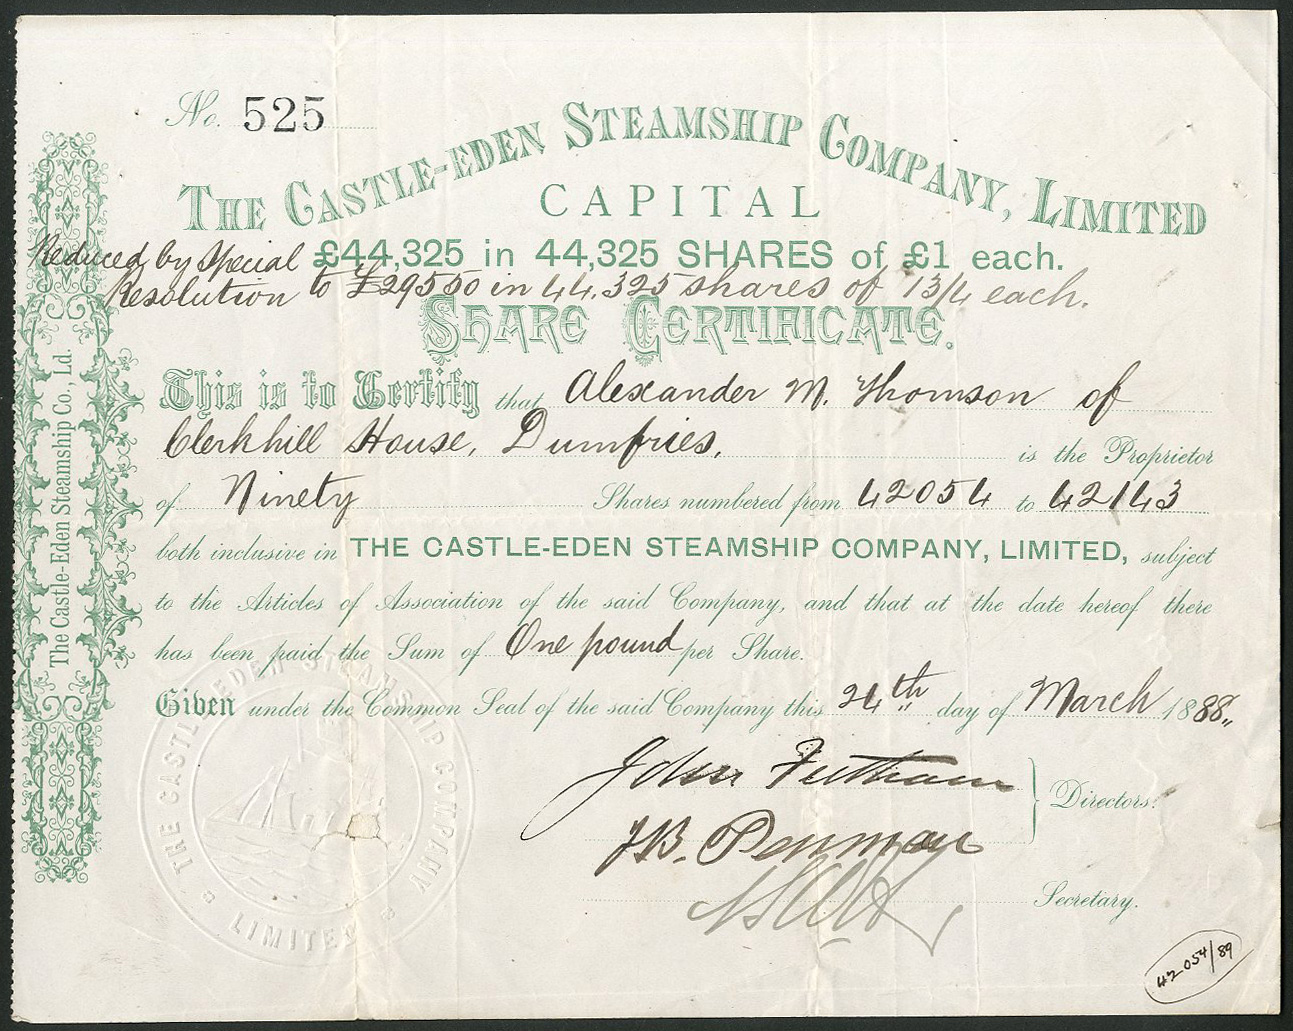 No. 525
THE CASTLE-EDEN STEAMSHIP COMPANY, LIMITED
CAPITAL
£44,325 in 44,325 SHARES of £1 each.
Reduced by Special
Resolution to £29550 in 44,325 shares of 13/4 each.
SHARE CERTIFICATE.
This is to Certify that Alexander M. Thomson of
Clerkhill House, Dumfries. is the Proprietor
of Ninety Shares numbered from 42054 to 42143
both inclusive in THE CASTLE-EDEN STEAMSHIP COMPANY, LIMITED, subject
to the Articles of Association of the said Company, and that at the date hereof there
has been paid the Sum of One pound per Share.
Given under the Common Seal of the said Company this 24th day of March 1888
John
J.B. Penman
Directors.
Secretary.
42054/89
The Castle-Eden Steamship Co., Ld.
THE CASTLE EDEN STEAMSHIP COMPANY
LIMITED